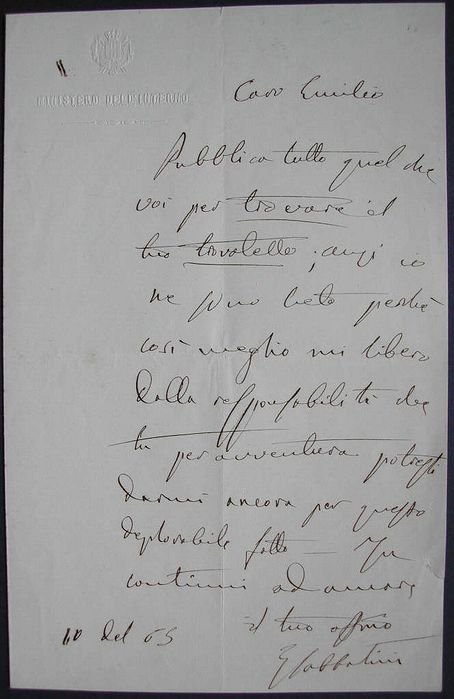 MINISTERO DELL'INTERNO
Caro Emilio
Pubblica tutto quel che
voi per trovare il
tuo trovatello; anzi io
ne sono lieto perchè
così meglio mi libero
dalla responsabilità che
tu per avventura potresti
darmi ancora per questo
deplorabile fatto — Tu
continui ad amare
il tuo affmo
10 del 65